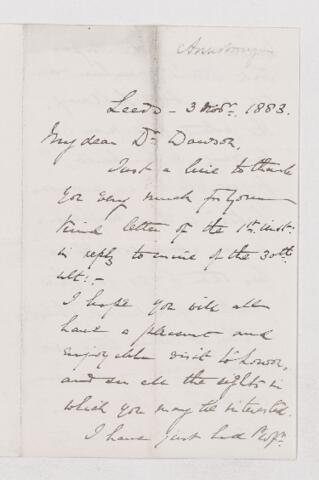 Leeds - 3 Novr. 1883.
My dear Dr. Dawson,
Just a line to thank
you very much for your
kind letter of the 1st. inst:
in reply to mine of the 30th.
ult: -
I hope you will all
have a pleasant and
enjoyable visit to
and see all the sights in
which you may be interested.
I have just had Profr.